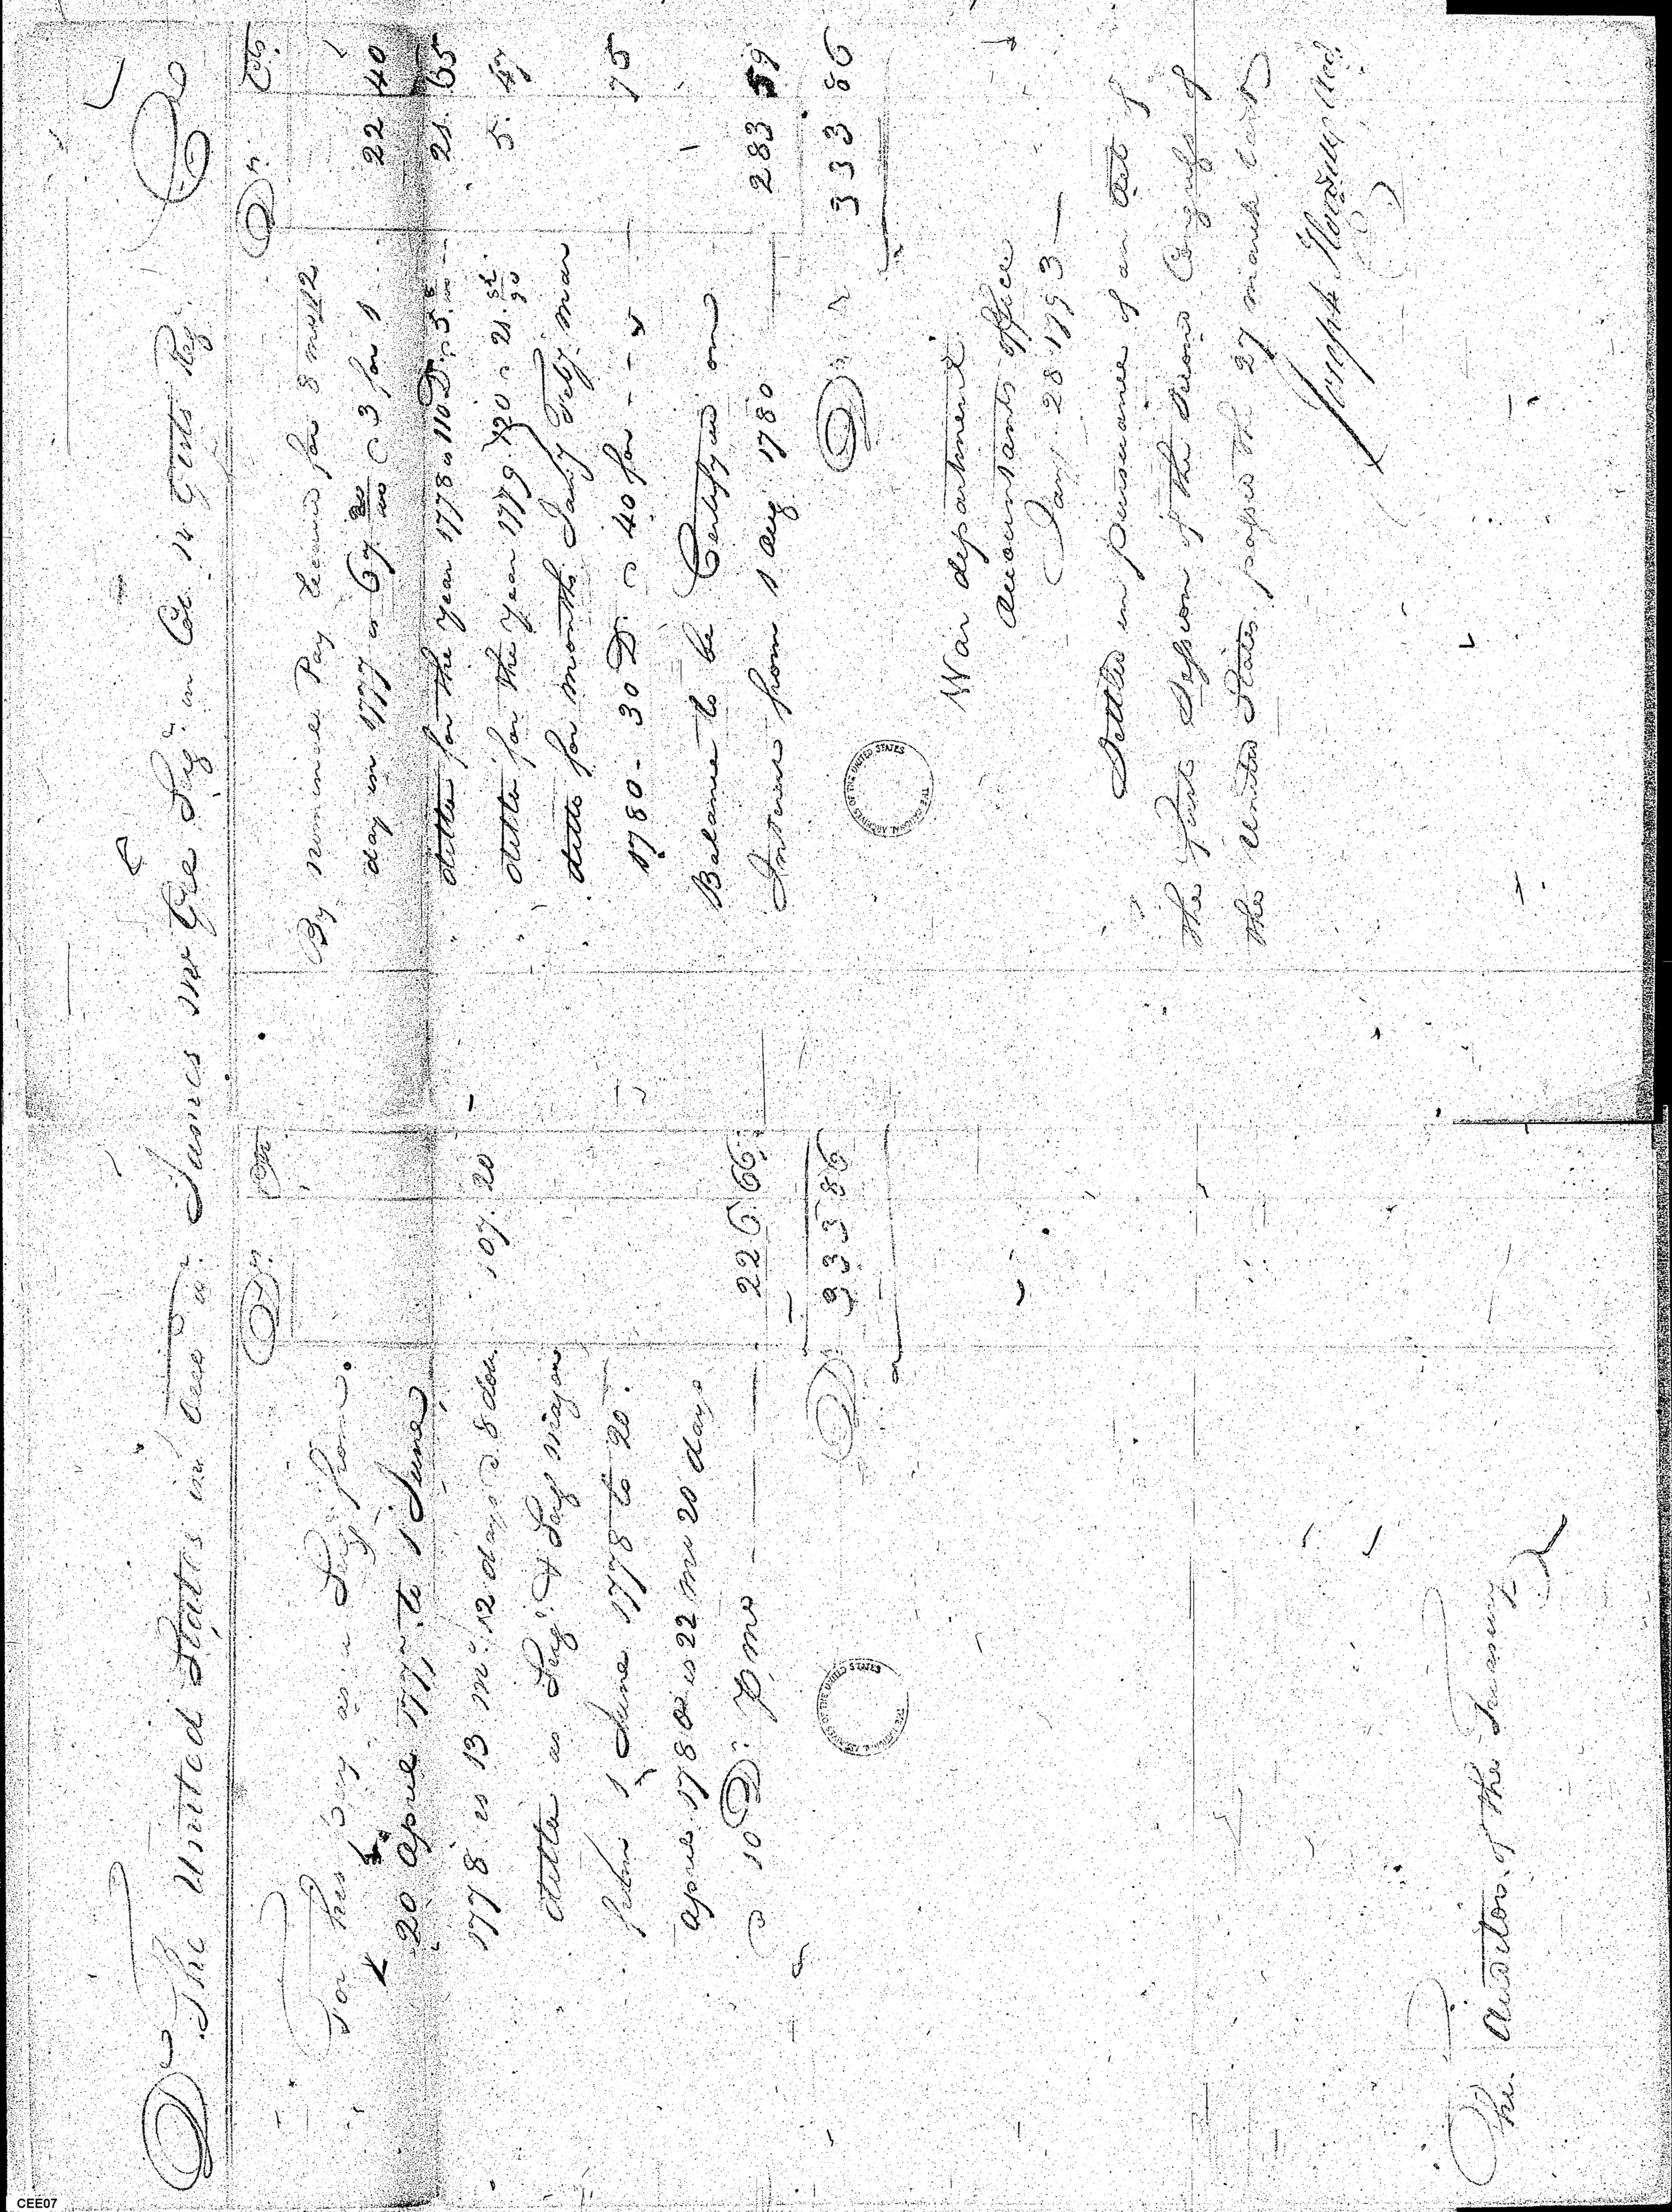 Dr. The United States in Acct wt. James McGee Sergt in Col. Gists Regt. Cr
Dr. Cts
For his Pay as a Sergt from
20 April 1777 to 1 June
1778 is 13 mo. 12 days @ 8 dolls. 107. 20
ditto as Sergt & Sergt Major
from 1 June 1778 to 20.
April 1780 is 22 mo 20 days
@ 10 Drs. P mo 226 66
Drs. 333 86
Drs. Cts.
By nominal Pay received for 8 mos 12
day in 1777 is 67 20/100 @ 3 for 1 22 40
" ditto for the year 1778 is 110 Drs. @ 5. 8/100 21. 65
" ditto for the year 1779. 120 @ 21. 5. 47
" ditto for months Jany Feby Mar
1780 - 30 Drs. @ 40 for - - 75
Balance to be Certifyed on
Interest from 1 Aug 1780 283 59
Drs. 333 86
War department
Accountants office
Jany. 28 1793
Settled in pursuance of an Act of
the first Session of the Second Congress of
the United States passed the 27 March last
Joseph Howell Acct.
The Auditor of the Treasury
THE NATIONAL ARCHIVES OF THE UNITED STATES
THE NATIONAL ARCHIVES OF THE UNITED STATES
CEE07